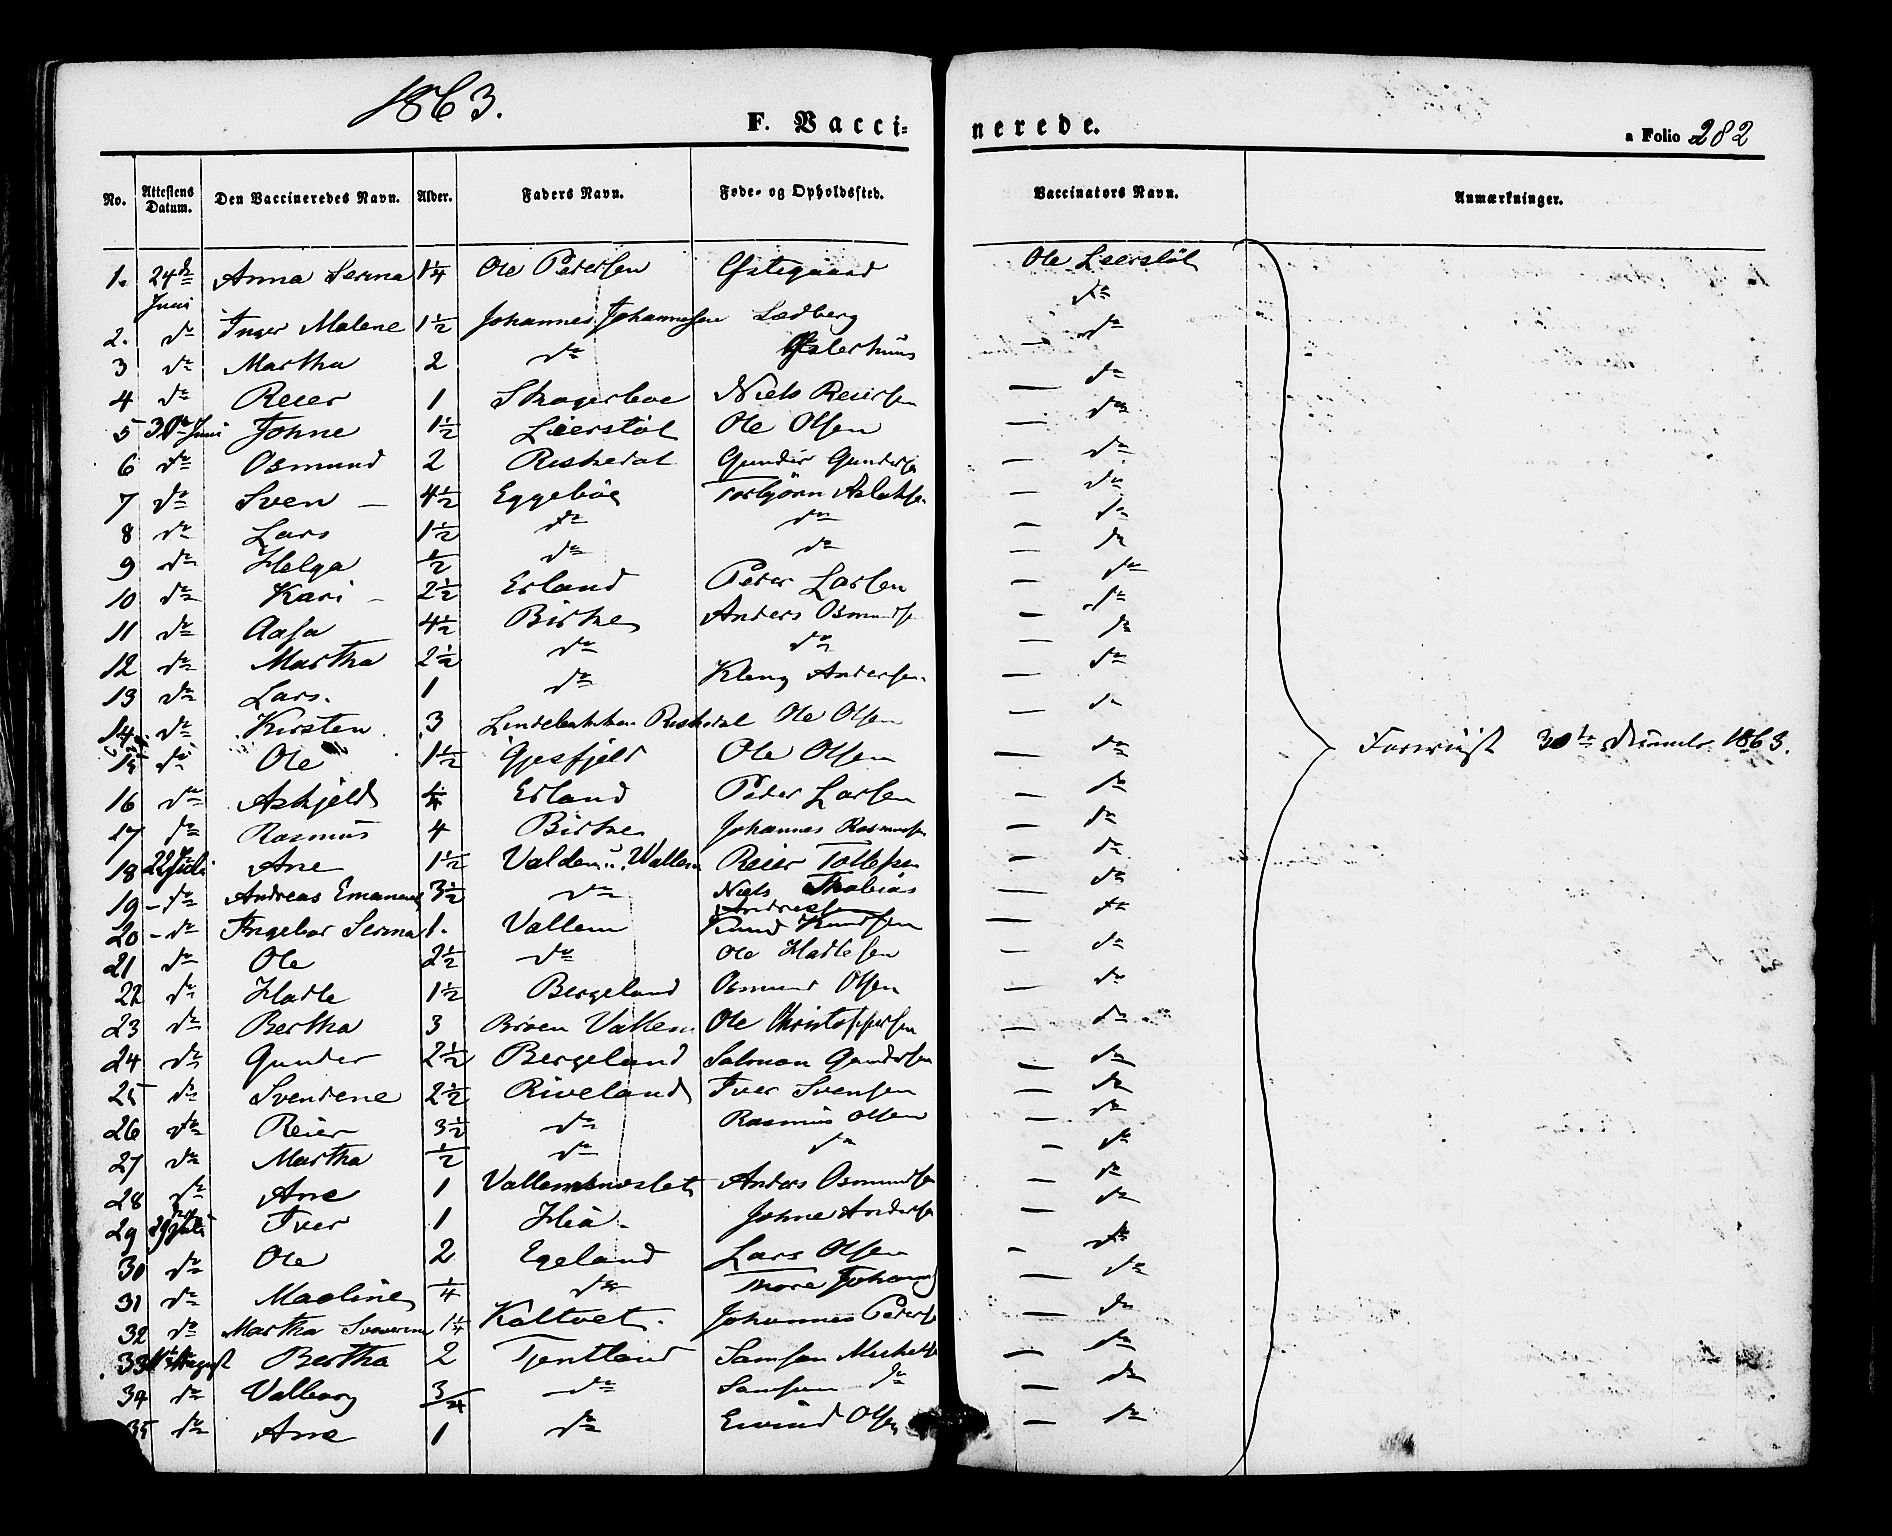 1863.
F. Vacci-
nerede.
a Folio 282
No. Attestens Datum. Den Vaccineredes Navn. Alder. Faders Navn. Føde- og Opholdssted. Vaccinators Navn. Anmærkninger.
1. 24de Juni Anna Serina 1 1/4 Ole Pedersen Østegaard Ole Leerstøl
2. do Inger Malene 1 1/2 Johannes Johannesen Lædberg do
3 do Martha 2 do — do
4 do Reier 1 Skogerboe Niels Reiersen — do
5 30te Juni Johne 1 1/2 Lierstøl Ole Olsen — do
6 do Osmund 2 Riskedal Gunder Gunders — do
7 do Sven — 4 1/2 Eggebøe Torbjørn Aslaks — do
8 do Lars 1 1/2 do do — do
9 do Helga 1/2 do do — do
10 do Kari — 2 1/2 Erland Peder Larsen — do
11 do Aasa 4 1/2 Birke Anders Osmunds — do
12 do Martha 2 1/2 do do — do
13 do Lars. 1 do Kleng Andersen — do
14 do Kirsten 3 Lindebakken Riskedal Ole Olsen — do
15 do Ole 1 1/2 Gjesfjeld Ole Olsen — do
16 do Askjeld Erland Peder Larsen — do
17 do Rasmus 4 Birke Johannes Rasmus — do
18 22 Juli Ane 1 1/2 Valde Vallem Reier Tollefsen — do
19 – do Andreas Emanuel 3 1/2 do Niels Thobias Andresen — do
20 – do Ingebor Serina 1. Vallem Knud Knudsen — do
21 do Ole 2 1/2 do Ole Hadlesen — do
22 do Hadle 1 1/2 Bergeland Osmund Olsen — do
23 do Bertha 3 Broen Vallem Ole Christophersen — do
24 do Gunder 2 1/2 Bergeland Salmon Gundersen — do
25 do Svendene 2 1/2 Riveland Iver Svensen — do
26 do Reier 3 1/2 do Rasmus Olsen — do
27 do Martha 1/2 do do — do
28 do Ane 1 Anders Osmundsen — do
29 29 Juli Iver 1 Hiå Johne Anders — do
30 do Ole 2 Egeland Lars Olsen — do
31 do Maoline 1/4 do Thore Johann — do
32 do Martha 1 1/4 Kaltvet. Johannes Peders — do
33 August Bertha 2 Tjentland Samson Mickels — do
34 do Valborg 3/4 do Samson do — do
35 do Ane 1 do Eivind Olsen — do
30te 1863.